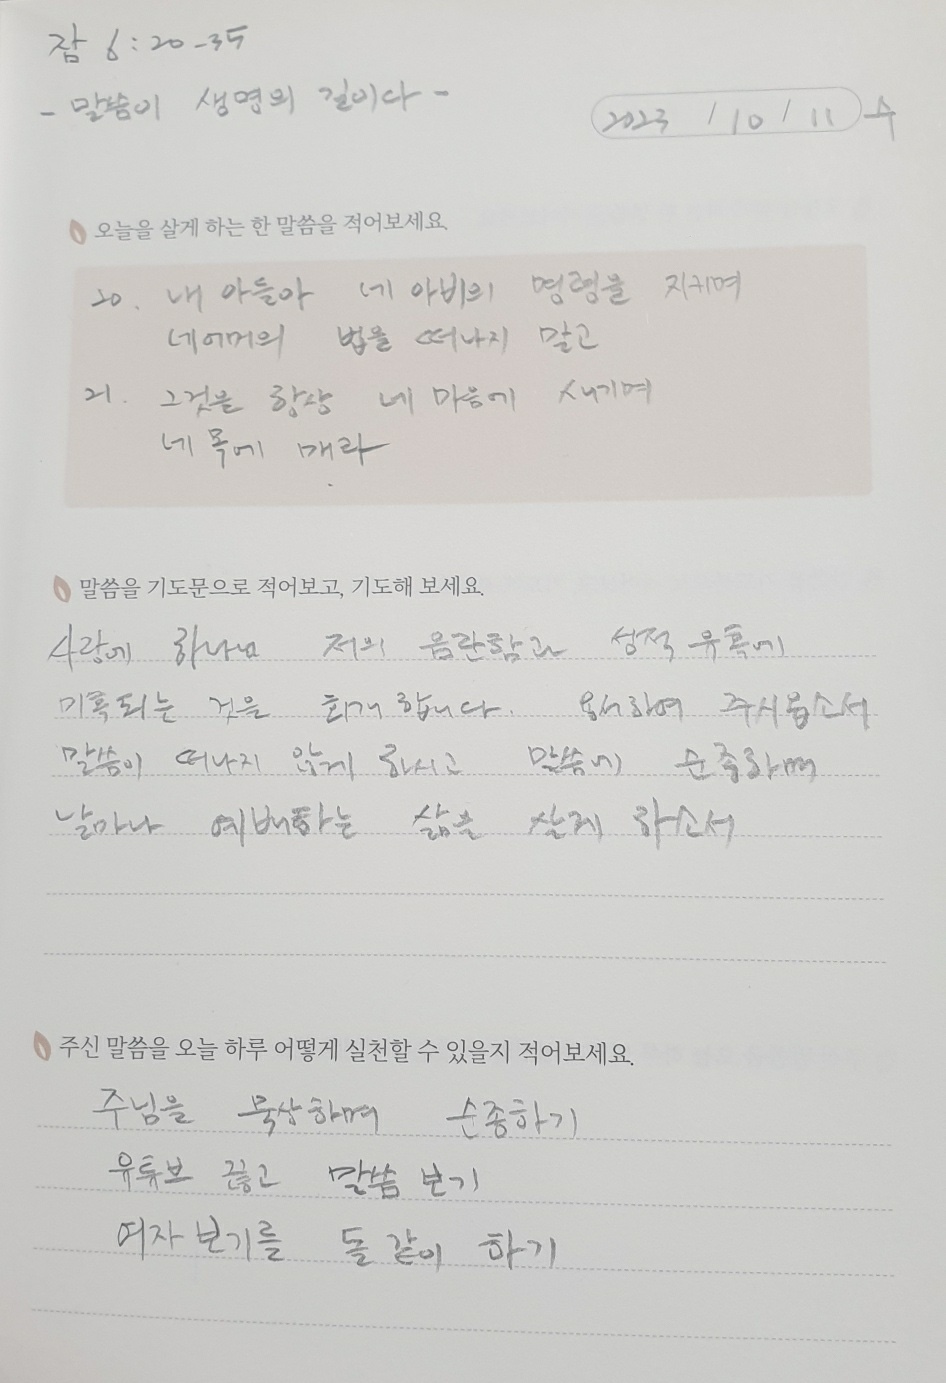 잠 6:20-35
- 말씀이 생명의 길이다 -
2023 / 10 / 11 수
오늘을 살게 하는 한 말씀을 적어보세요.
20. 내 아들아 네 아비의 명령을 지키며
네 어머의 법을 떠나지 말고
21. 그것을 항상 네 마음에 새기며
네 목에 매라
말씀을 기도문으로 적어보고, 기도해 보세요.
사랑에 하나님 저의 음란함과 성적 유혹에
미혹되는 것을 회개합니다. 용서하여 주시옵소서
말씀이 떠나지 않게 하시고 말씀에 순종하며
날마다 예배하는 삶을 살게 하소서
주신 말씀을 오늘 하루 어떻게 실천할 수 있을지 적어보세요.
주님을 묵상하며 순종하기
유튜브 끊고 말씀 보기
여자 보기를 돌 같이 하기